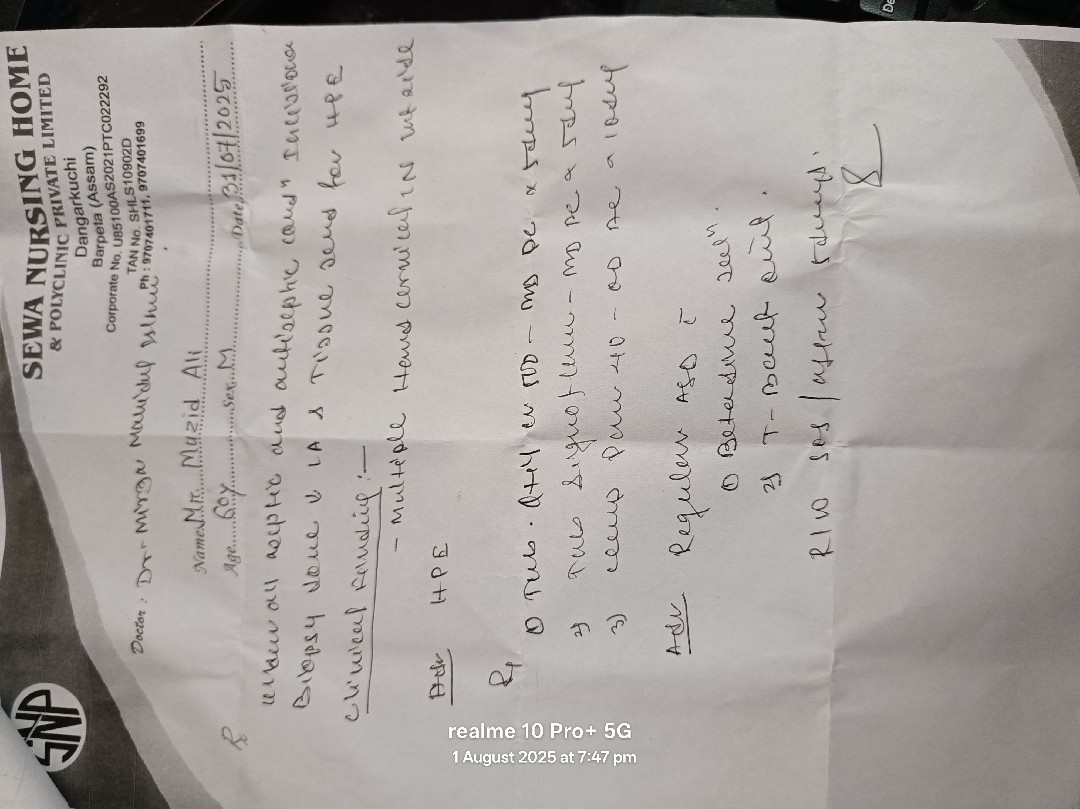 SNP
SEWA NURSING HOME
& POLYCLINIC PRIVATE LIMITED
Dangarkuchi
Barpeta (Assam)
Corporate No. U85100AS2021PTC022292
TAN No. SHLS10902D
Ph : 9707401711, 9707401699
Doctor : Dr. Mirza
Name Mr. Mazid Ali
Age 60y Sex M Date 31/07/2025
Rx
under all aseptic and antiseptic condn
Biopsy done LA & Tissue send for HPE
Clinical Finding :-
- Multiple Hard cervical LN
Adv HPE
Rx
1) Tab. 500 - BD PC x 5days
2) Tab - BD PC x 5days
3) 40 - OD AC x 10days
Adv Regular ASD c̄
1) Betadine soln.
2) T-Bact oint.
R/W SOS / after 5days.
realme 10 Pro+ 5G
1 August 2025 at 7:47 pm